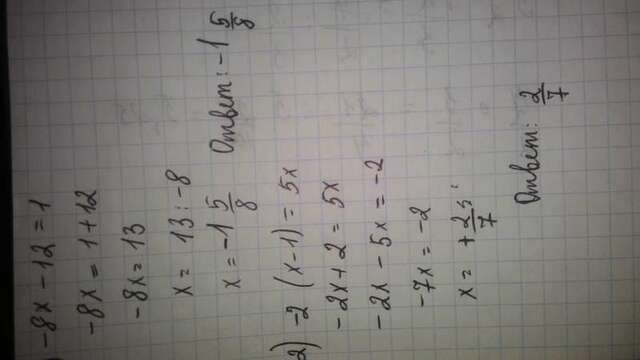 ) -8x - 12 = 1
-8x = 1 + 12
-8x = 13
x = 13 : -8
x = -1 5/8 Ответ: -1 5/8
2) -2 (x-1) = 5x
-2x + 2 = 5x
-2x - 5x = -2
-7x = -2
x = + 2/7
Ответ: 2/7